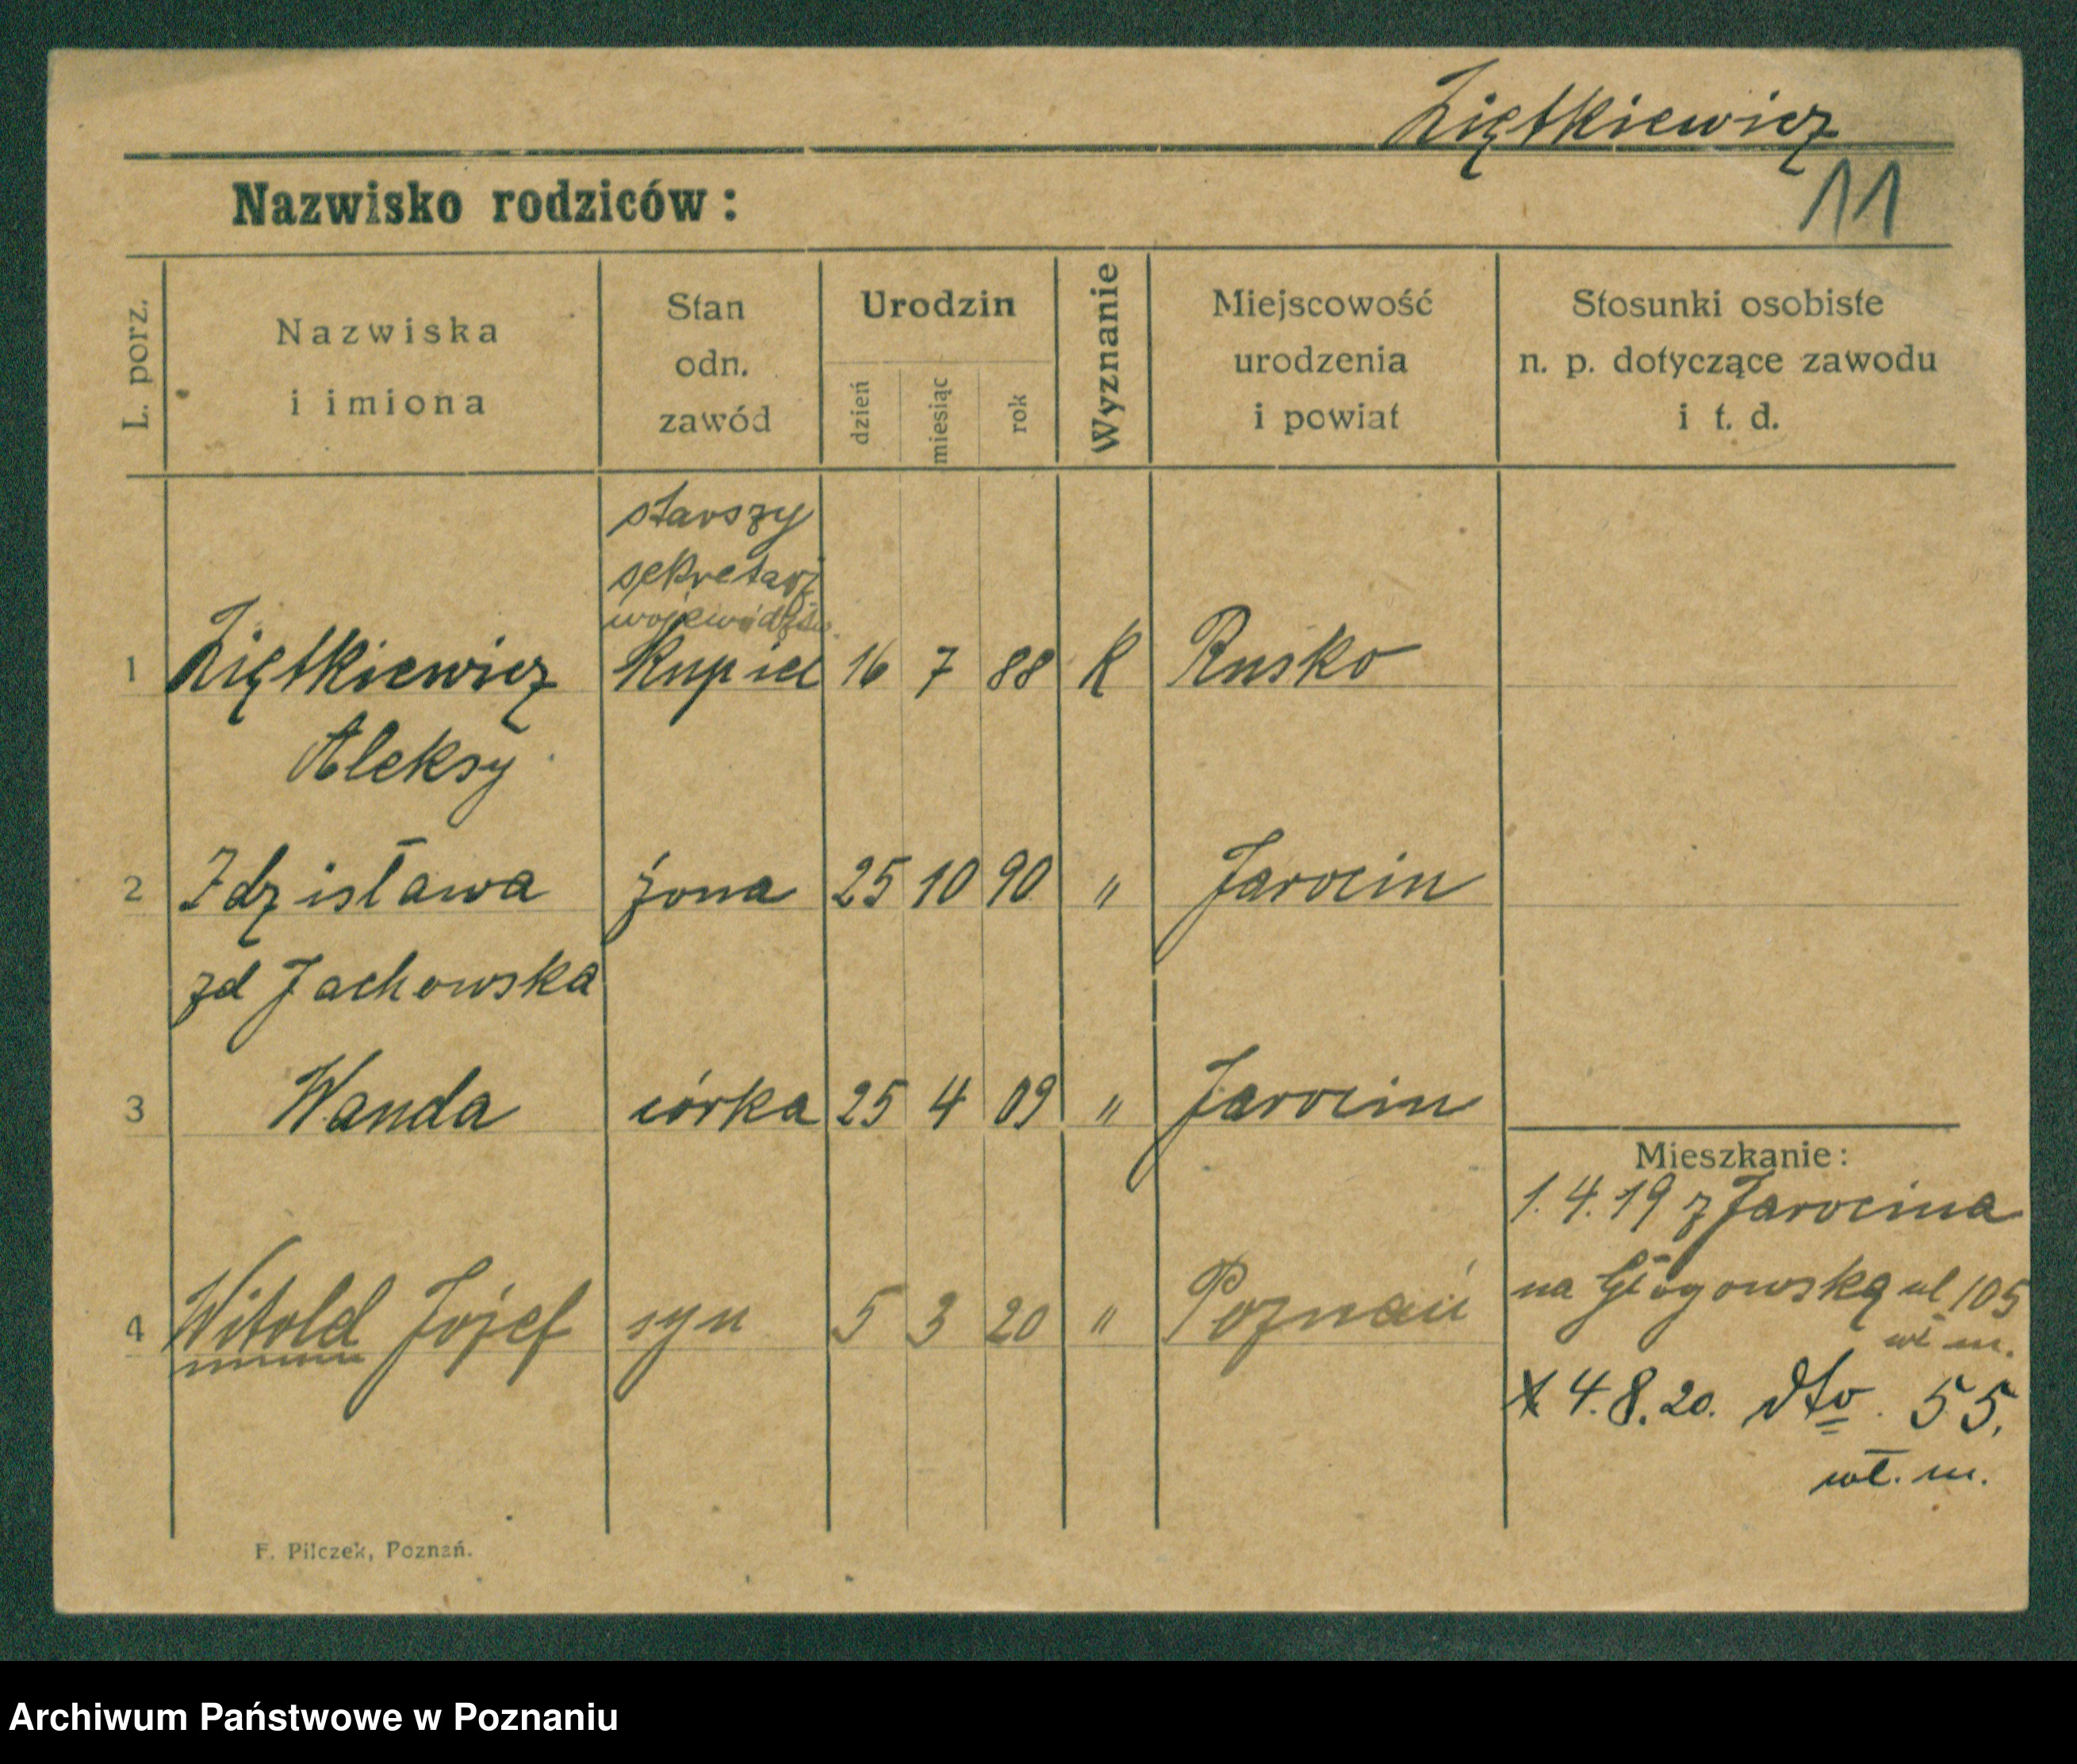 Ziętkiewicz
11
Nazwisko rodziców:
L. porz.
Nazwiska
i imiona
Stan
odn.
zawód
Urodzin
dzień
miesiąc
rok
Wyznanie
Miejscowość
urodzenia
i powiat
Stosunki osobiste
n. p. dotyczące zawodu
i t. d.
starszy
sekretarz
wojewódzki
1 Ziętkiewicz kupiec 16 7 88 K Rusko
Aleksy
2 Zdzisława żona 25 10 90 " Jarocin
zd Jachowska
3 Wanda córka 25 4 09 " Jarocin
Mieszkanie:
1.4.19 z Jarocina
na Głogowską ul 105
wł m.
4 Witold Józef syn 5 3 20 " Poznań
X 4.8.20. dto. 55.
wł. m.
F. Pilczek, Poznań.
Archiwum Państwowe w Poznaniu